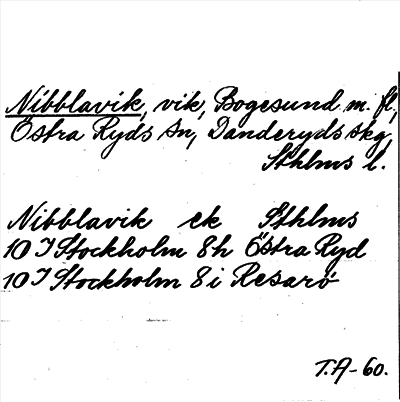 Nibblavik, vik, Bogesund m. fl.,
Östra Ryds sn, Danderyds skg,
Sthlms l.
Nibblavik ek Sthlms
10 I Stockholm 8h Östra Ryd
10 I Stockholm 8i Resarö
T.A-60.